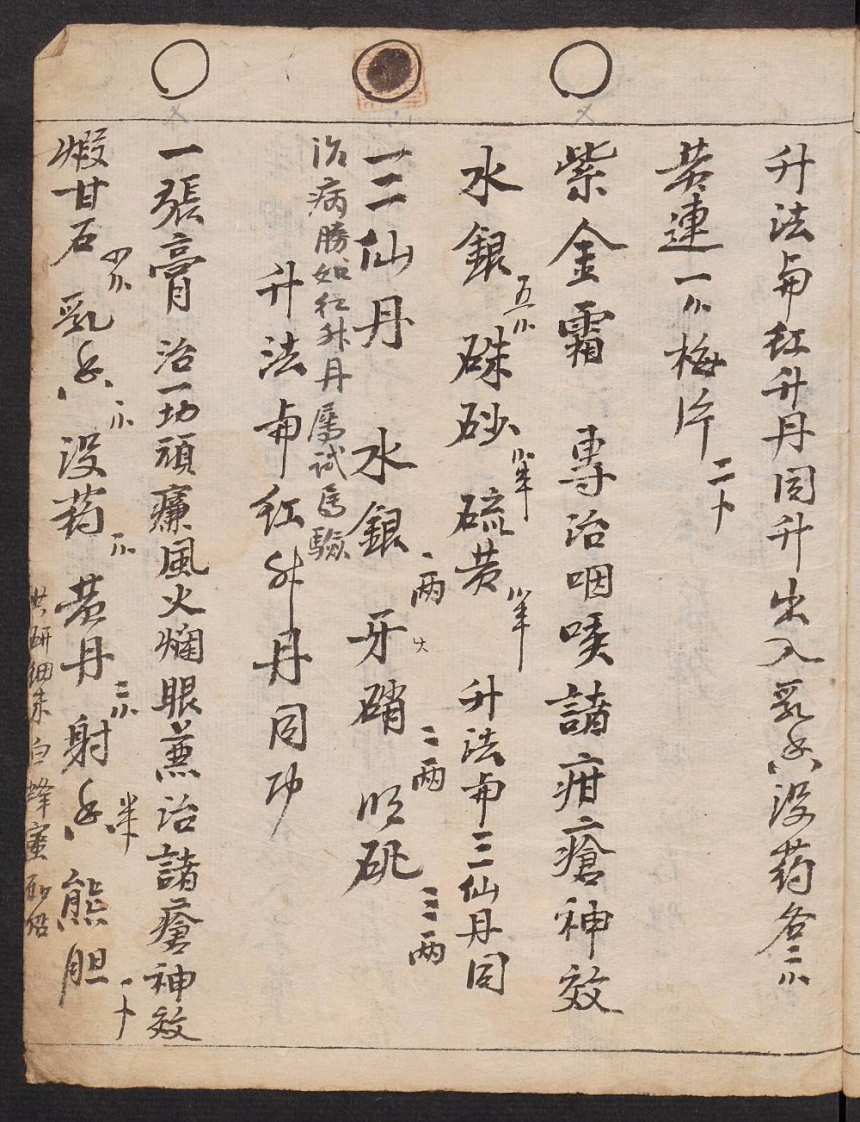 升法与红升丹同升出入乳香没药各二小
黄連一小梅片二卜
紫金霜 專治咽喉諸疳瘡神效
水銀五小硃砂小半硫黄小半升法与三仙丹同
一三仙丹 水銀一两牙硝二两明矾三两
治病勝如红升丹屡試屡驗
升法与红升丹同功
一張膏治一切頑癬風火爛眼兼治諸瘡神效
煆甘石小乳香小没药小黄丹二小射香半熊胆一卜
共研細末白蜂蜜